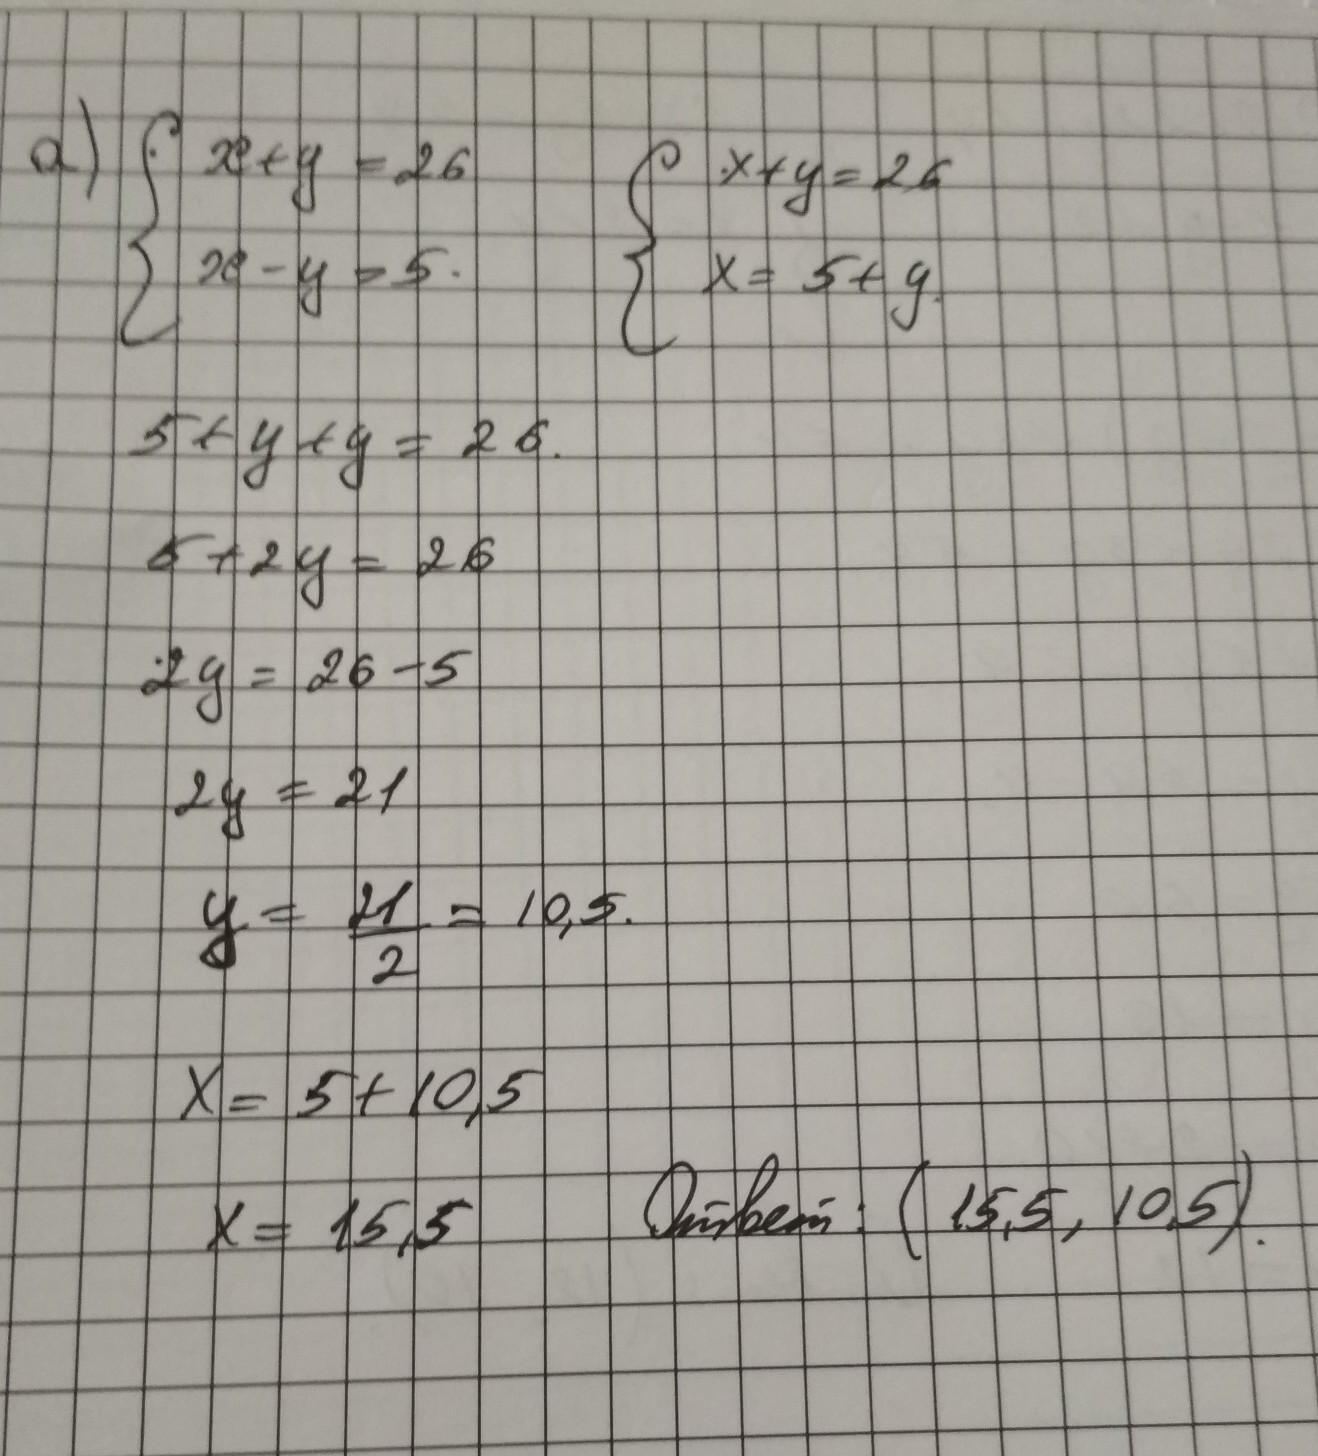 а) { x+y = 26 { x+y = 26
x - y = 5. x = 5 + y.
5 + y + y = 26.
5 + 2y = 26
2y = 26 - 5
2y = 21
y = 21/2 = 10,5.
x = 5 + 10,5
x = 15,5 Ответ: (15,5, 10,5).